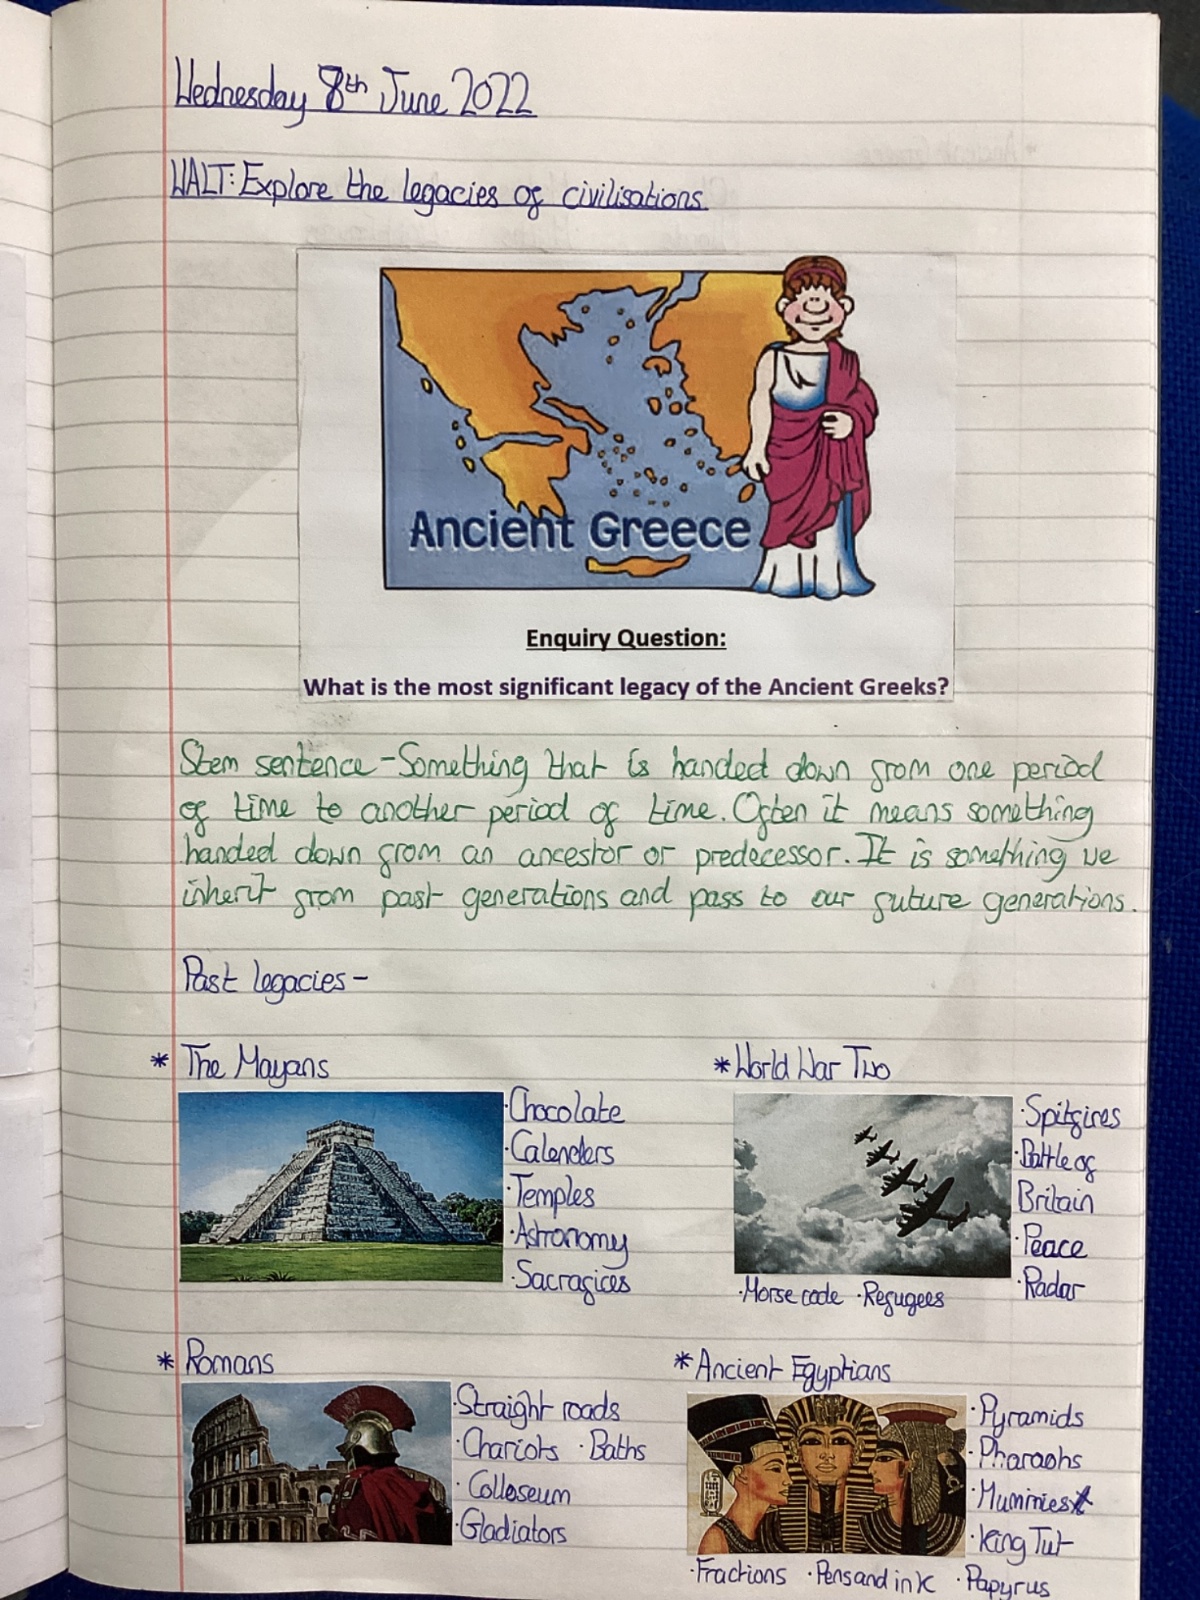 Wednesday 8th June 2022
WALT: Explore the legacies of civilisations
Ancient Greece
Enquiry Question:
What is the most significant legacy of the Ancient Greeks?
Stem sentence - Something that is handed down from one period
of time to another period of time. Often it means something
handed down from an ancestor or predecessor. It is something we
inherit from past generations and pass to our future generations.
Past legacies -
* The Mayans
· Chocolate
· Calenders
· Temples
· Astronomy
· Sacrafices
* World War Two
· Spitfires
· Battle of
Britain
· Peace
· Radar
· Morse code · Refugees
* Romans
· Straight roads
· Chariots · Baths
· Colloseum
· Gladiators
* Ancient Egyptians
· Pyramids
· Pharaohs
· Mummies
· King Tut
· Fractions · Pens and ink · Papyrus